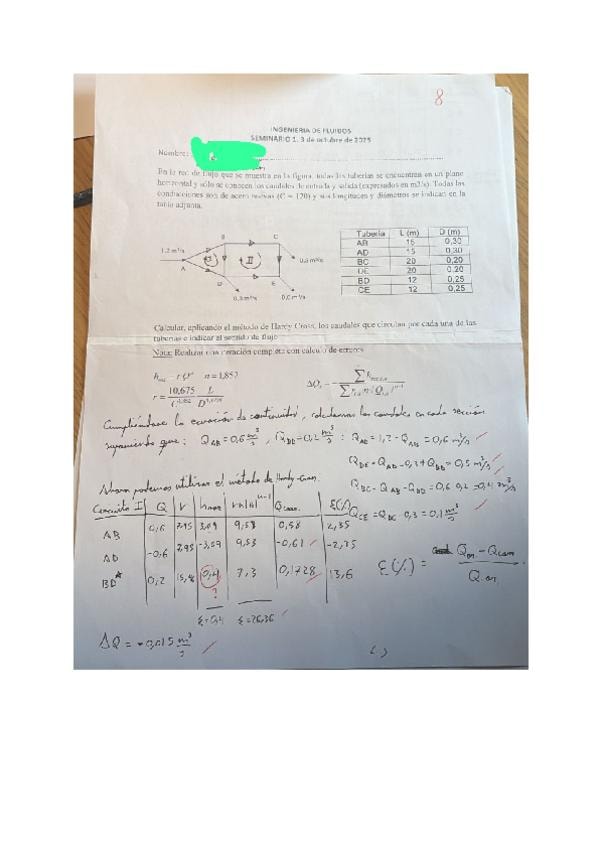 8
INGENIERIA DE FLUIDOS
SEMINARIO 1. 3 de octubre de 2025
Nombre:
En la red de flujo que se muestra en la figura, todas las tuberías se encuentran en un plano
horizontal y sólo se conocen los caudales de entrada y salida (expresados en m3/s). Todas las
conducciones son de acero (C = 120) y sus longitudes y diámetros se indican en la
tabla adjunta.
B C
1,2 m³/s
I II
0,3 m³/s
A
D E
0,3 m³/s
Tubería L (m) D (m)
AB 15 0,30
AD 15 0,30
BC 20 0,20
DE 20 0,20
BD 12 0,25
CE 12 0,25
Calcular, aplicando el método de Hardy Cross, los caudales que circulan por cada una de las
tuberías e indicar el sentido de flujo
Nota: Realizar una iteración completa con cálculo de errores
n = 1,852
Cumpliéndose la ecuación de continuidad, calculamos los caudales en cada sección
suponiendo que: Q AB = 0,6 m³/s, Q BD = 0,2 m³/s : = 1,2 - Q AB = 0,6 m³/s
Q DE = Q AD - 0,3 + Q BD = 0,5 m³/s
Q BC = Q AB - Q BD = 0,6 0,2 = 0,4 m³/s
Q CE = Q BC 0,3 = 0,1 m³/s
Ahora podemos utilizar el método de Hardy-Cross.
Circuito I Q r
AB 0,6 7,95 9,58 0,58 2,35
AD -0,6 7,95 -3,59 9,53 -0,61 -2,35
BD* 0,2 0,4 7,3 0,1728 13,6
?
Σ=0,4 Σ=26,36
ΔQ = -0,015 m³/s